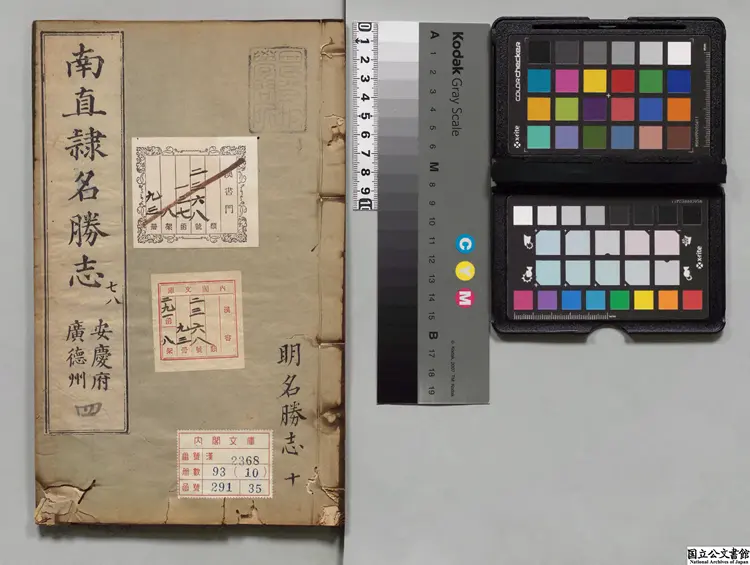 南直隷名勝志
七八
安慶府
廣德州
四
漢書門
二三六八
一七八
九三
類
號
函
架
冊
內閣文庫
漢書
二三六八
九三
二九一
八
明名勝志
十
內閣文庫
番號 漢 2368
冊數 93 (10)
函號 291 35
Kodak Gray Scale
A 1 2 3 4 5 6 M 8 9 10 11 12 13 14 15 B 17 18 19
0 1 2 3 4 5 6 7 8 9 10
C
Y
M
colorchecker
x-rite
x-rite
国立公文書館
National Archives of Japan